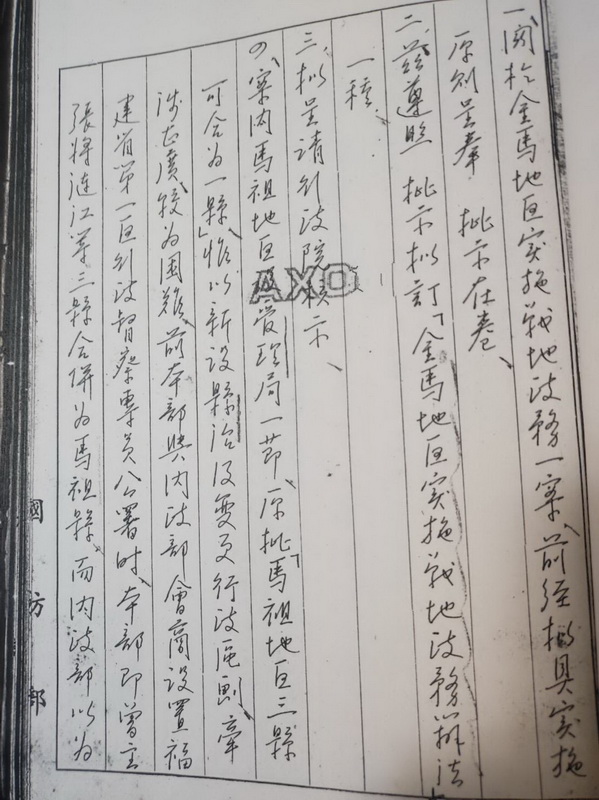 一、關於金馬地區實施戰地政務一案、前經擬具實施
原則呈奉 批示在卷、
二、茲遵照 批示擬訂「金馬地區實施戰地政務辦法」
一種、
三、擬呈請行政院核示、
案內馬祖地區管理局一節、原批「馬祖地區三縣
可合為一縣」惟以新設縣治及變更行政區劃、牽
涉太廣較為困難、前本部與內政部會商設置福
建省第一區行政督察專員公署時、本部即曾主
張將連江等三縣合併為馬祖縣、而內政部以為
國防部
AXO